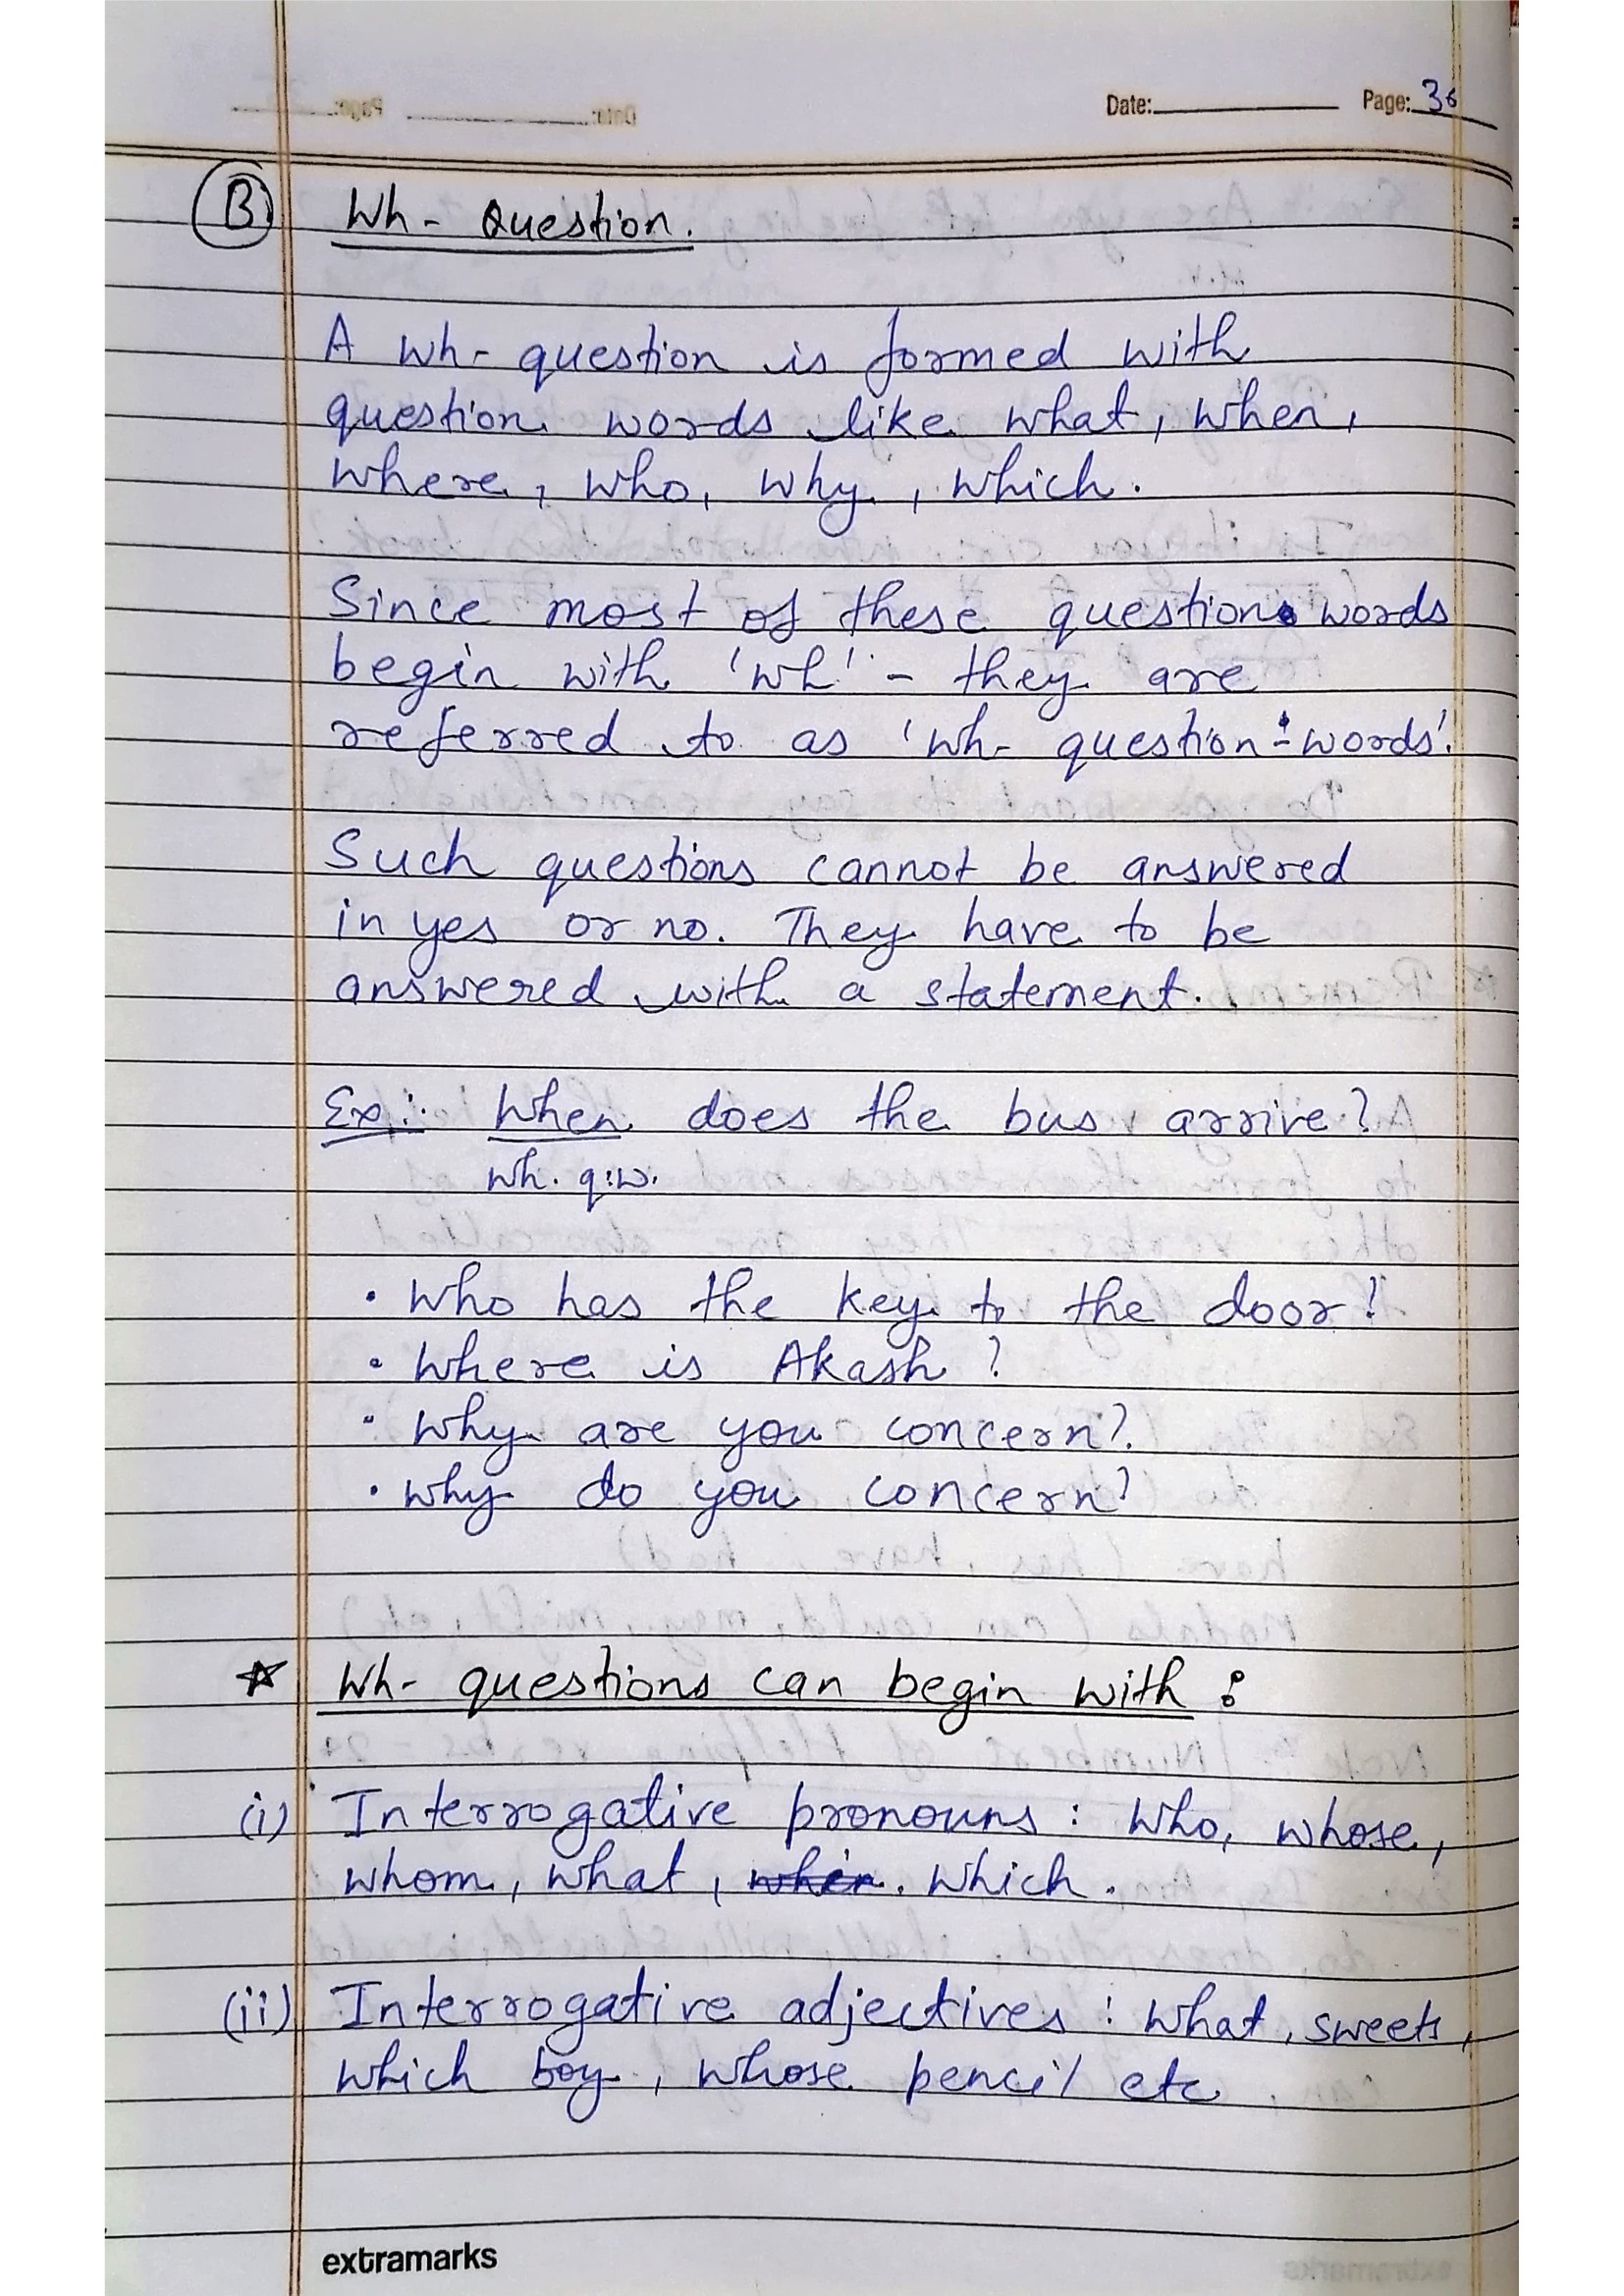 Date: Page: 36
(B) Wh- Question.
A wh- question is formed with
question words like what, when,
where, who, why, which.
Since most of these question words
begin with 'wh' - they are
referred to as 'wh- question-words'.
Such questions cannot be answered
in yes or no. They have to be
answered with a statement.
Ex:- When does the bus arrive?
Wh. q.w.
• Who has the key to the door?
• Where is Akash?
• Why are you concern?
• Why do you concern?
☆ Wh- questions can begin with :
(i) Interrogative pronouns : Who, whose,
whom, what, which.
(ii) Interrogative adjectives : What, sweets,
which boy, whose pencil etc
extramarks